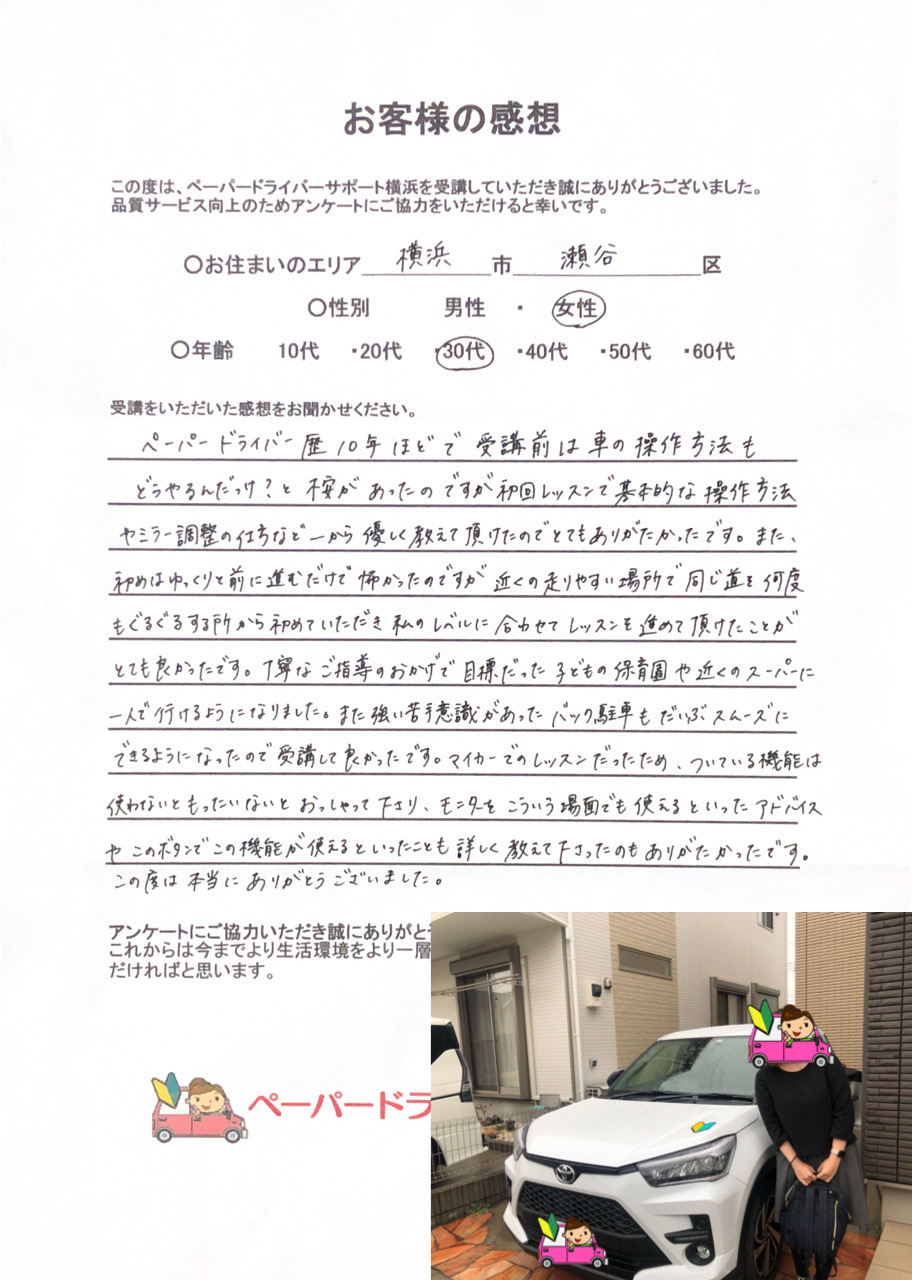 お客様の感想
この度は、ペーパードライバーサポート横浜を受講していただき誠にありがとうございました。
品質サービス向上のためアンケートにご協力をいただけると幸いです。
〇お住まいのエリア 横浜 市 瀬谷 区
〇性別 男性 ・ 女性
〇年齢 10代 ・20代 ・30代 ・40代 ・50代 ・60代
受講をいただいた感想をお聞かせください。
ペーパードライバー歴10年ほどで受講前は車の操作方法も
どうやるんだっけ?と不安があったのですが初回レッスンで基本的な操作方法
やミラー調整の仕方など一から優しく教えて頂けたのでとてもありがたかったです。また、
初めはゆっくりと前に進むだけで怖かったのですが近くの走りやすい場所で同じ道を何度
もぐるぐるする所から初めていただき私のレベルに合わせてレッスンを進めて頂けたことが
とても良かったです。丁寧なご指導のおかげで目標だった子どもの保育園や近くのスーパーに
一人で行けるようになりました。また強い苦手意識があったバック駐車もだいぶスムーズに
できるようになったので受講して良かったです。マイカーでのレッスンだったため、ついている機能は
使わないともったいないとおっしゃって下さり、モニターをこういう場面でも使えるといったアドバイス
やこのボタンでこの機能が使えるといったことも詳しく教えて下さったのもありがたかったです。
この度は本当にありがとうございました。
アンケートにご協力いただき誠にありがと
これからは今までより生活環境をより一層
だければと思います。
ペーパードラ